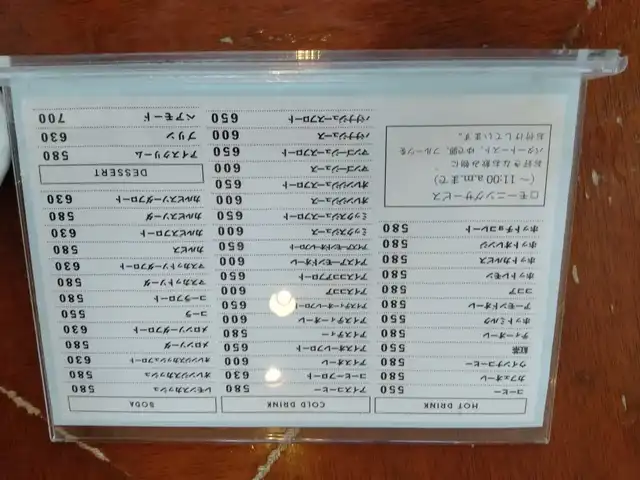 HOT DRINK
コーヒー 550
カフェオーレ 580
ウインナコーヒー 580
紅茶 550
ティーオーレ 580
ホットミルク 550
アーモンドオーレ 580
ココア 580
ホットレモン 580
ホットカルピス 580
ホットオレンジ 580
ホットチョコレート 580
□モーニングサービス
(〜 11:00 a.m.まで)
お好きなお飲み物に、
バタートースト、ゆで卵、フルーツを
お付けしています。
COLD DRINK
アイスコーヒー 580
コーヒーフロート 630
アイスオーレ 600
アイスオーレフロート 650
アイスティー 580
アイスティーオーレ 600
アイスティーオーレフロート 650
アイスココア 600
アイスココアフロート 650
アイスアーモンドオーレ 600
アイスアーモンドオーレフロート 650
ミックスジュース 600
ミックスジュースフロート 650
オレンジジュース 600
オレンジジュースフロート 650
マンゴージュース 600
マンゴージュースフロート 650
バナナジュース 600
バナナジュースフロート 650
SODA
レモンスカッシュ 580
オレンジスカッシュ 580
オレンジスカッシュフロート 630
メロンソーダ 580
メロンソーダフロート 630
コーラ 550
コーラフロート 580
マスカットソーダ 580
マスカットソーダフロート 630
カルピス 580
カルピスフロート 630
カルピスソーダ 580
カルピスソーダフロート 630
DESSERT
アイスクリーム 580
プリン 630
ペアモード 700